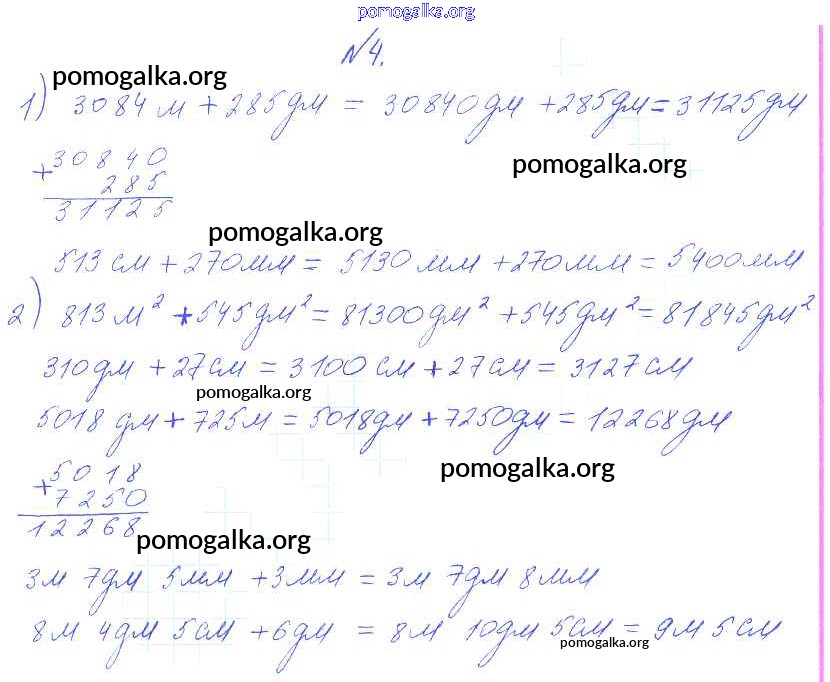 pomogalka.org
№4.
pomogalka.org
1) 3084 м + 285 дм = 30840 дм + 285 дм = 31125 дм
+30840
pomogalka.org
285
31125
pomogalka.org
513 см + 270 мм = 5130 мм + 270 мм = 5400 мм
2) 813 м² + 545 дм² = 81300 дм² + 545 дм² = 81845 дм²
310 дм + 27 см = 3100 см + 27 см = 3127 см
pomogalka.org
5018 дм + 725 м = 5018 дм + 7250 дм = 12268 дм
+5018
pomogalka.org
7250
12268
pomogalka.org
3м 7дм 5мм + 3мм = 3м 7дм 8мм
8м 4дм 5см + 6дм = 8м 10дм 5см = 9м 5см
pomogalka.org